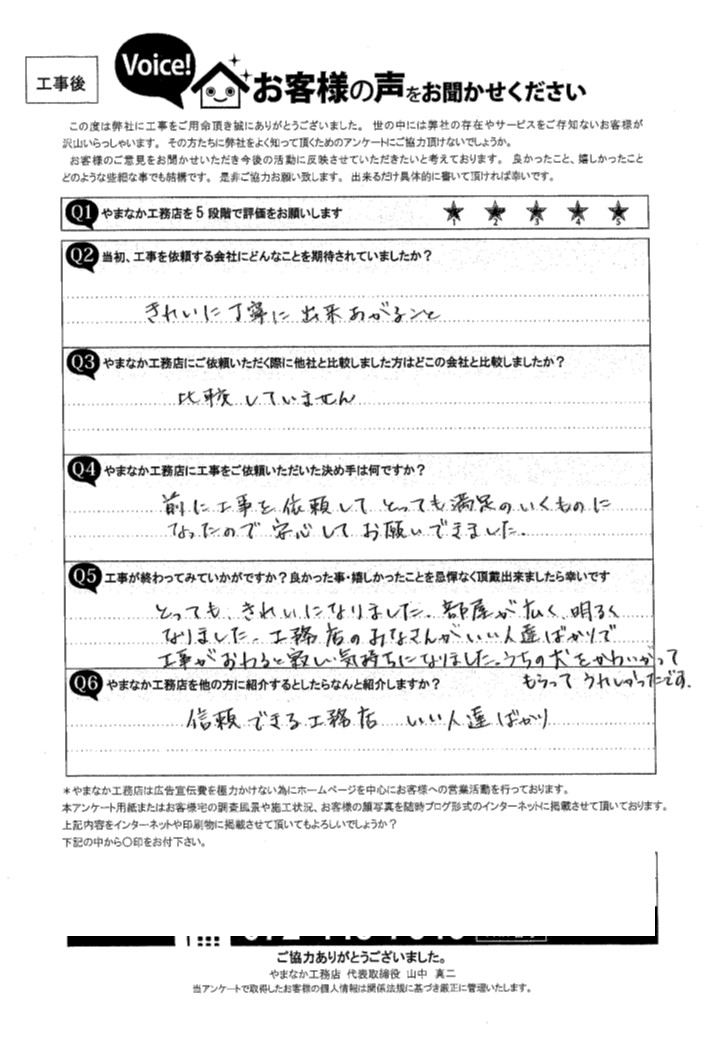 工事後
Voice!
お客様の声をお聞かせください
この度は弊社に工事をご用命頂き誠にありがとうございました。 世の中には弊社の存在やサービスをご存知ないお客様が
沢山いらっしゃいます。 その方たちに弊社をよく知って頂くためのアンケートにご協力頂けないでしょうか。
お客様のご意見をお聞かせいただき今後の活動に反映させていただきたいと考えております。 良かったこと、嬉しかったこと
どのような些細な事でも結構です。 是非ご協力お願い致します。 出来るだけ具体的に書いて頂ければ幸いです。
Q1 やまなか工務店を5段階で評価をお願いします
1 2 3 4 5
Q2 当初、工事を依頼する会社にどんなことを期待されていましたか?
きれいに丁寧に出来あがること
Q3 やまなか工務店にご依頼いただく際に他社と比較しました方はどこの会社と比較しましたか?
比較していません
Q4 やまなか工務店に工事をご依頼いただいた決め手は何ですか?
前に工事を依頼してとっても満足のいくものに
なったので安心してお願いできました。
Q5 工事が終わってみていかがですか?良かった事・嬉しかったことを忌憚なく頂戴出来ましたら幸いです
とっても、きれいになりました。部屋が広く、明るく
なりました。工務店のみなさんがいい人達ばかりで
工事がおわると寂しい気持ちになりました。うちの犬をかわいがって
もらってうれしかったです。
Q6 やまなか工務店を他の方に紹介するとしたらなんと紹介しますか?
信頼できる工務店 いい人達ばかり
*やまなか工務店は広告宣伝費を極力かけない為にホームページを中心にお客様への営業活動を行っております。
本アンケート用紙またはお客様宅の調査風景や施工状況、お客様の顔写真を随時ブログ形式のインターネットに掲載させて頂いております。
上記内容をインターネットや印刷物に掲載させて頂いてもよろしいでしょうか?
下記の中から○印をお付下さい。
ご協力ありがとうございました。
やまなか工務店 代表取締役 山中 真二
当アンケートで取得したお客様の個人情報は関係法規に基づき厳正に管理いたします。